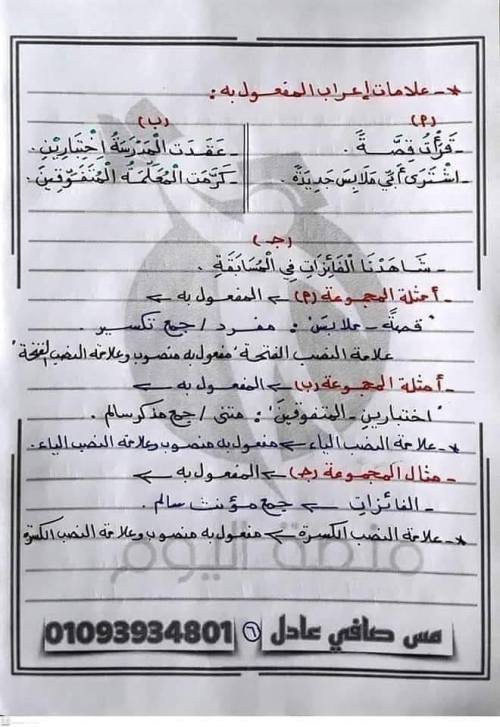 *- علامات إعراب المفعول به :
(أ)
(ب)
- قَرَأْتُ قِصَّــةً .
- عَقَدَتِ الْمَدْرَسَةُ اخْتِبَارَيْنِ.
- اشْتَرَى أَبِي مَلَابِسَ جَدِيدَةً.
- كَرَّمَتِ الْمُعَلِّمَةُ الْمُتَفَوِّقِينَ.
(جـ)
- شَاهَدْنَا الْفَائِزَاتِ فِي الْمُسَابَقَةِ .
- أمثلة المجموعة (أ) ← المفعول به ←
"قصةً - ملابسَ" : مفرد / جمع تكسير .
علامة النصب الفتحة "مفعول به منصوب وعلامة النصب الفتحة"
- أمثلة المجموعة (ب) ← المفعول به ←
"اختبارين - المتفوقين" : مثنى / جمع مذكر سالم .
*- علامة النصب الياء ← مفعول به منصوب وعلامة النصب الياء.
- مثال المجموعة (جـ) ← المفعول به ←
- الفائزاتِ ← جمع مؤنث سالم.
*- علامة النصب الكسرة ← مفعول به منصوب وعلامة النصب الكسرة
منصة اليوم
مس صافي عادل ٦ 01093934801